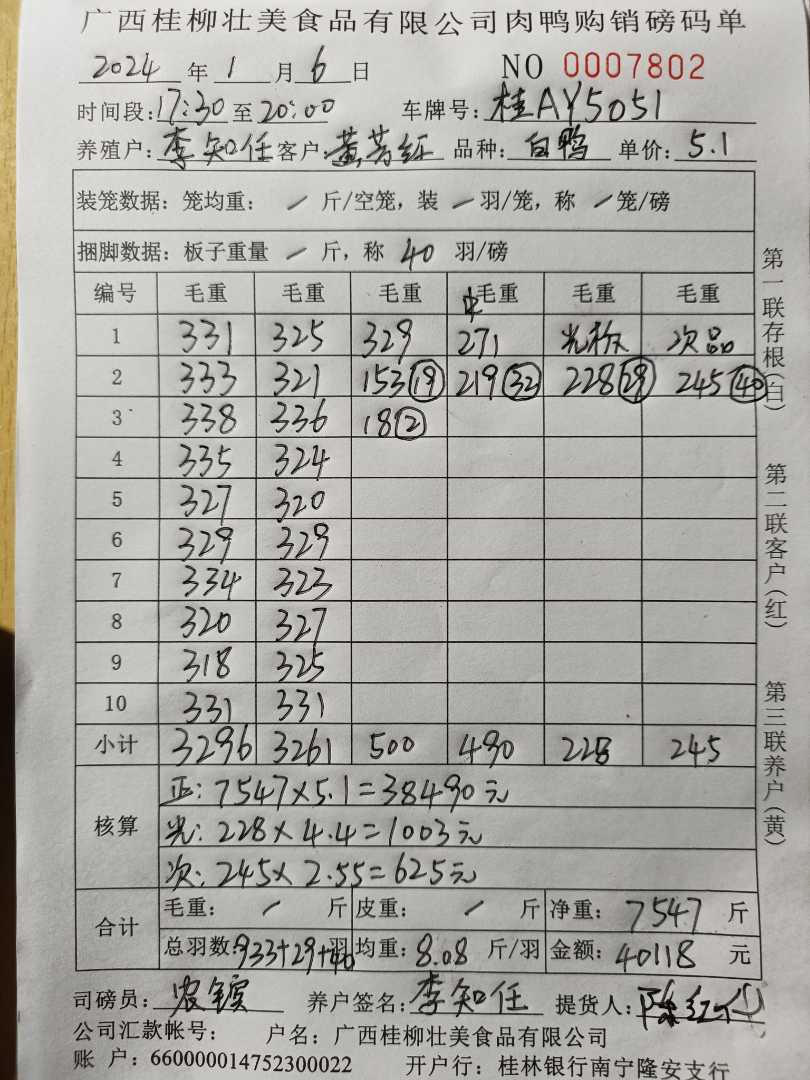 广西桂柳壮美食品有限公司肉鸭购销磅码单
2024年1月6日 NO 0007802
时间段:17:30至20:00 车牌号:桂AY5051
养殖户:李知任 客户:黄芳红 品种:白鸭 单价:5.1
装笼数据:笼均重: / 斤/空笼,装 / 羽/笼,称 / 笼/磅
捆脚数据:板子重量 / 斤,称 40 羽/磅
编号 毛重 毛重 毛重 中毛重 毛重 毛重
1 331 325 329 271 光称 次品
2 333 321 153(19) 219(32) 228(29) 245(40)
3 338 336 18(2)
4 335 324
5 327 320
6 329 329
7 334 323
8 320 327
9 318 325
10 331 331
小计 3296 3261 500 490 228 245
核算 正:7547×5.1=38490元
光:228×4.4=1003元
次:245×2.55=625元
合计 毛重: / 斤 皮重: / 斤 净重:7547斤
总羽数:933+29+40羽 均重:8.08斤/羽 金额:40118元
司磅员:农 养户签名:李知任 提货人:陈红
公司汇款帐号: 户名:广西桂柳壮美食品有限公司
账 户:660000014752300022 开户行:桂林银行南宁隆安支行
第一联存根(白)
第二联客户(红)
第三联养户(黄)